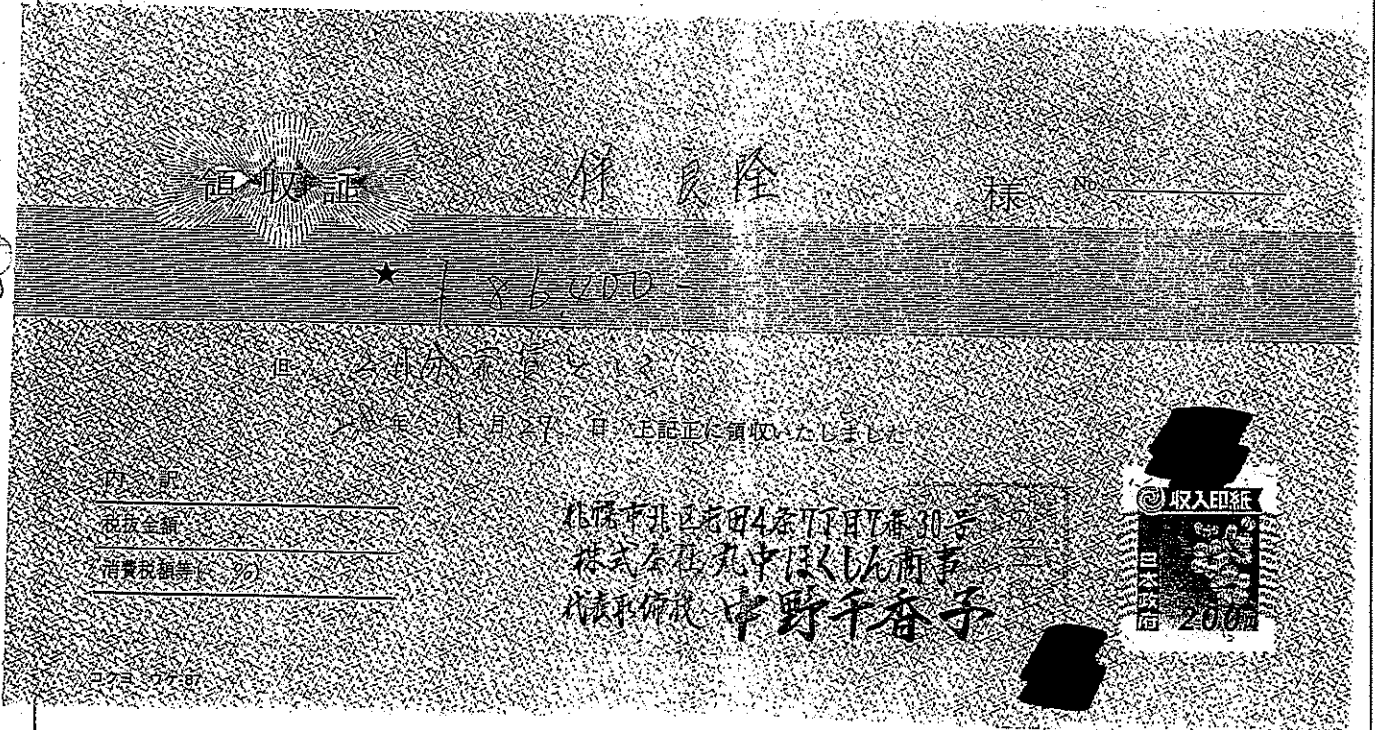 領収証 伴 良隆 様 No.
★ ¥86,400-
但 2月分家賃として
28年 1月27日 上記正に領収いたしました
内 訳
税抜金額
消費税額等( %)
札幌市北区屯田4条7丁目7番30号
株式会社丸中ほくしん商事
代表取締役 中野千香子
収入印紙
200円
コクヨ ウケ-87